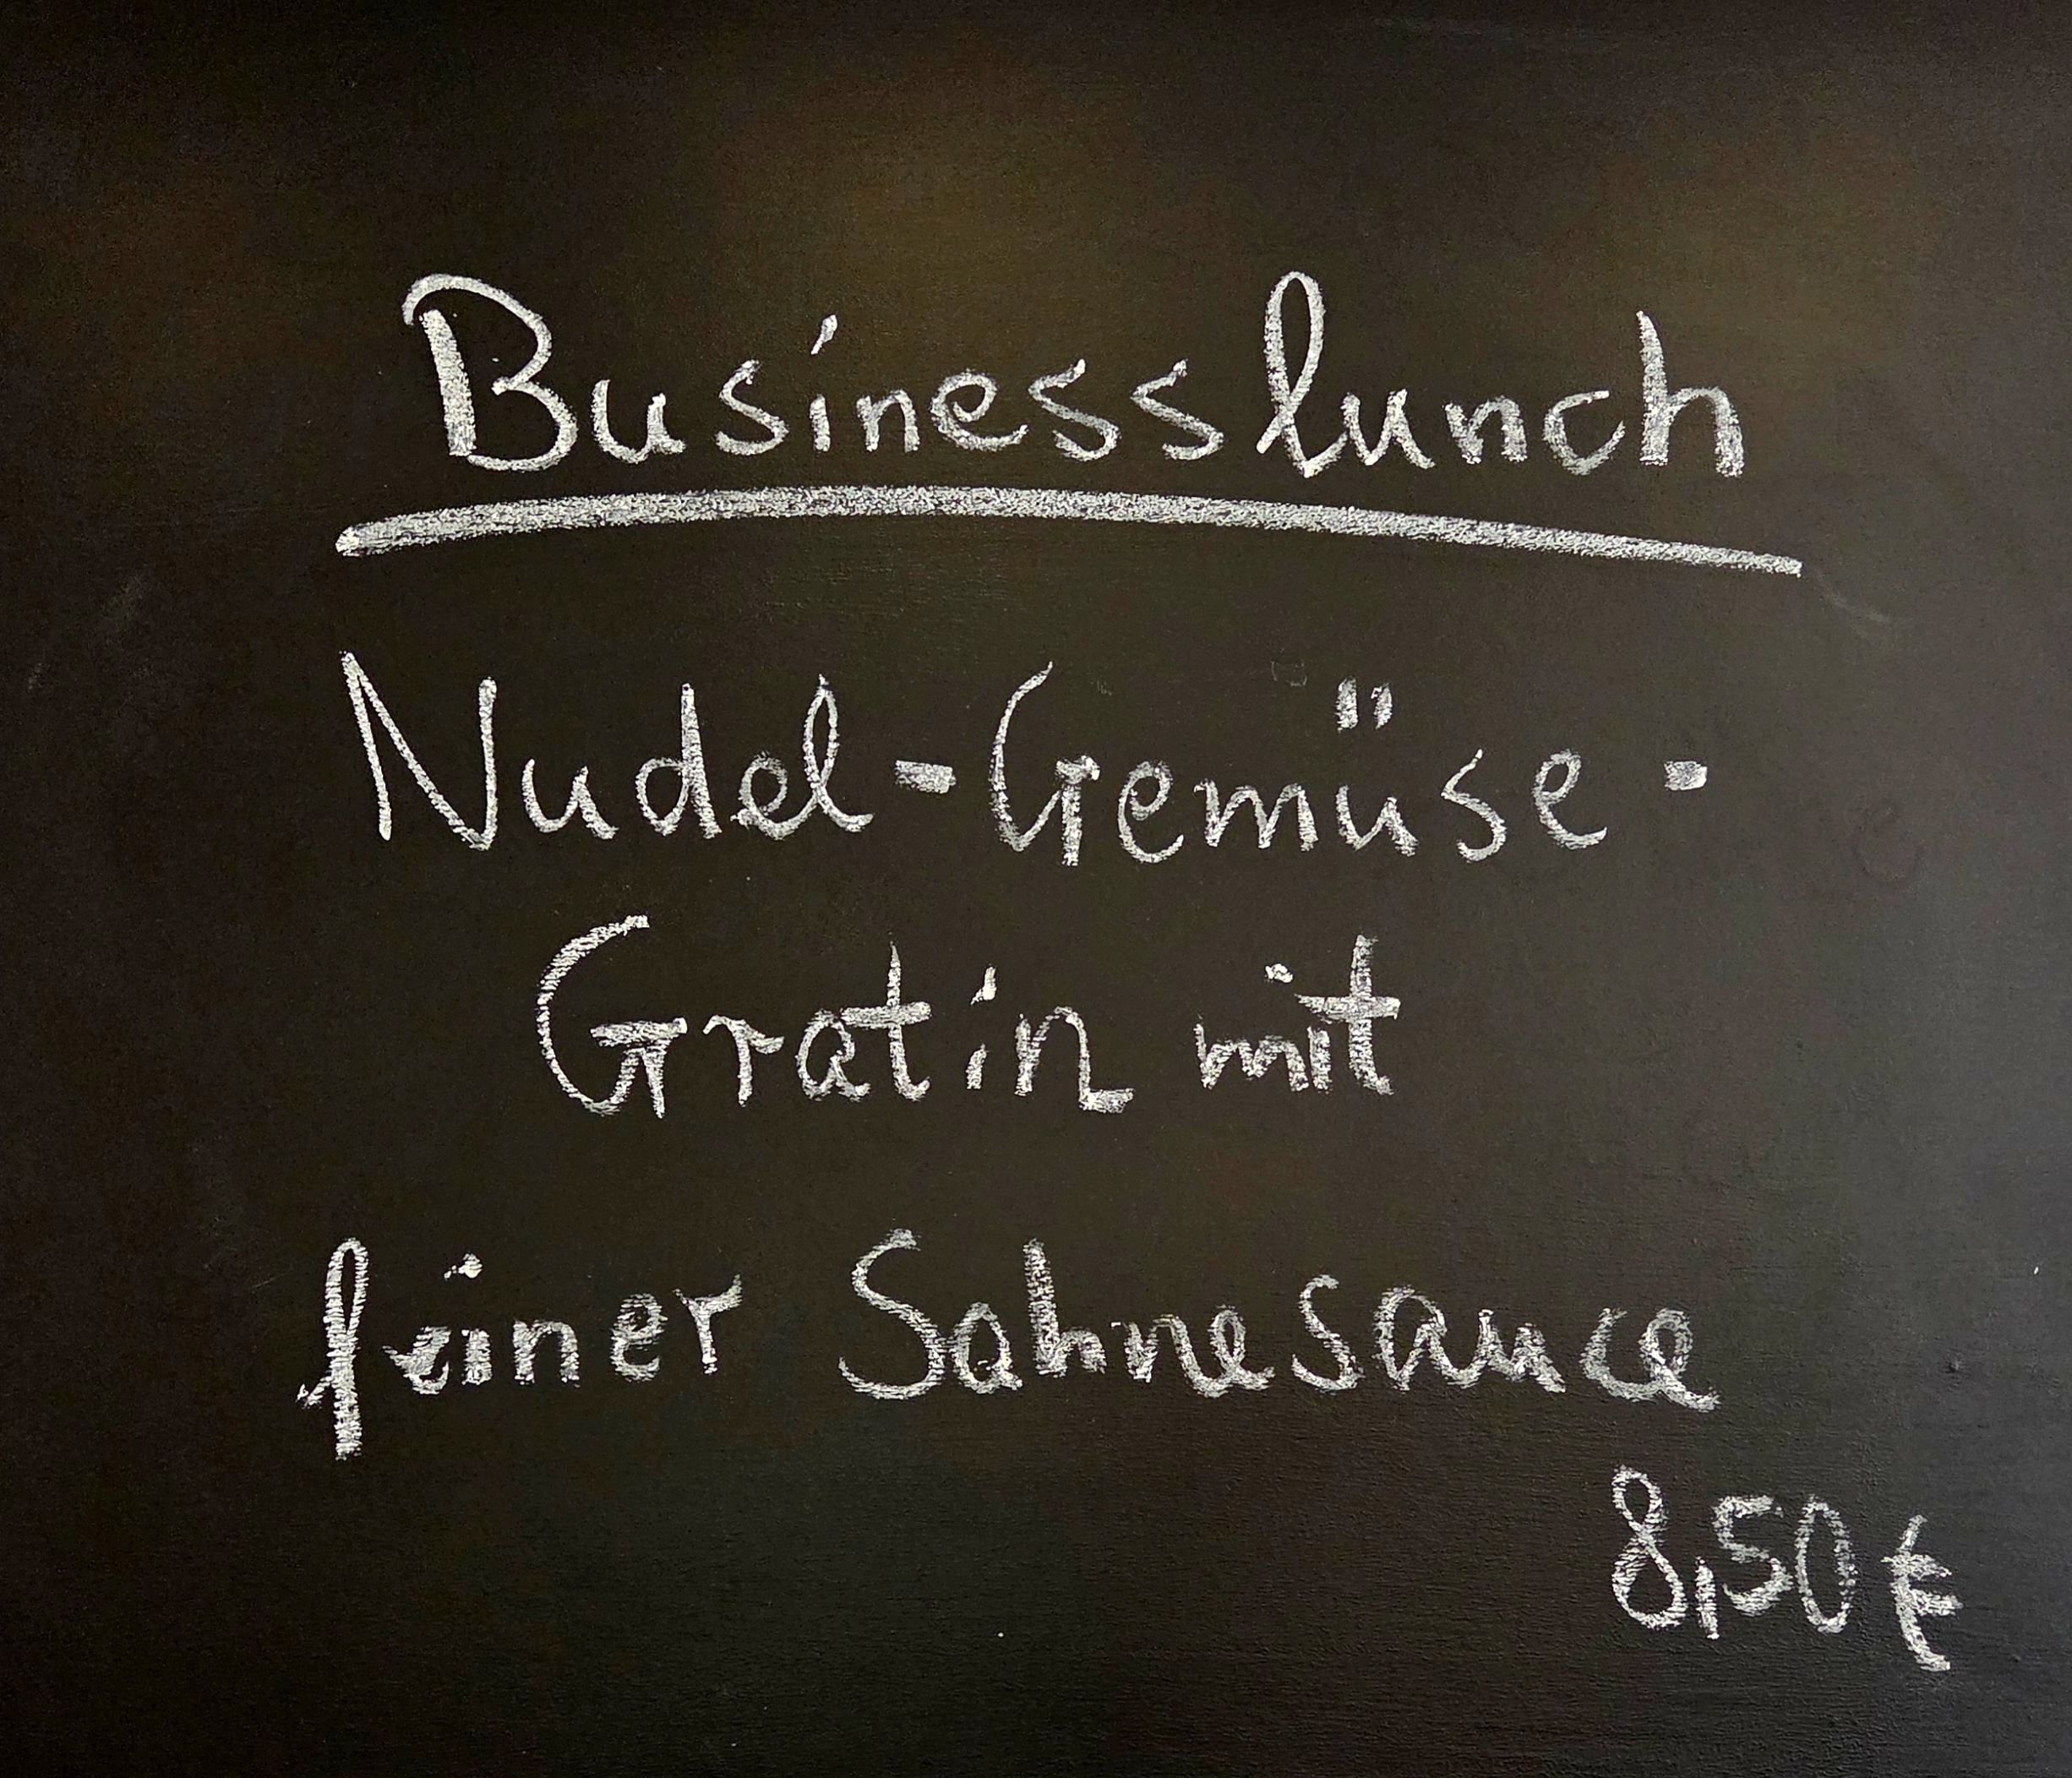 Businesslunch
Nudel-Gemüse-
Gratin mit
feiner Sahnesauce
8,50 €